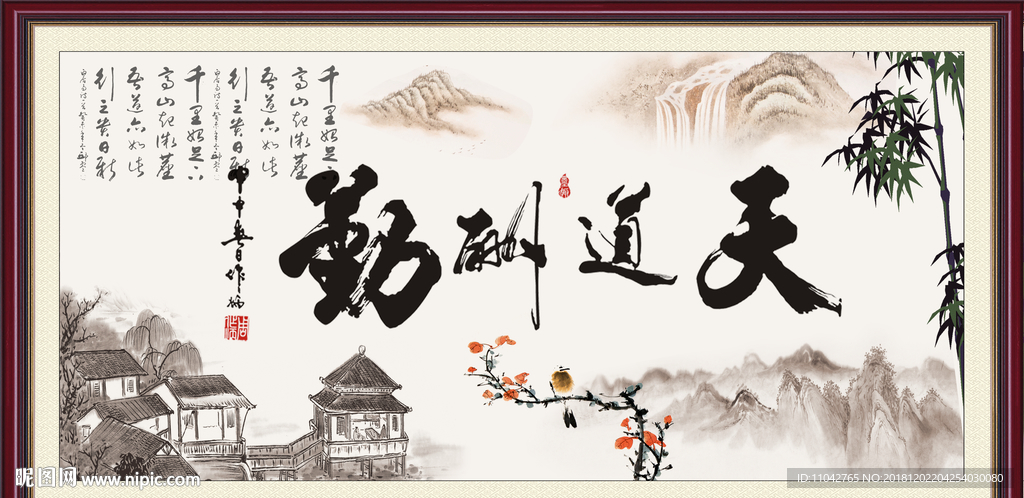 天道酬勤
千里始足下
高山起微塵
吾道亦如此
行之貴日新
千里始足下
高山起微塵
吾道亦如此
行之貴日新
昵图网 www.nipic.com
ID:11042765 NO:20181202204254030080